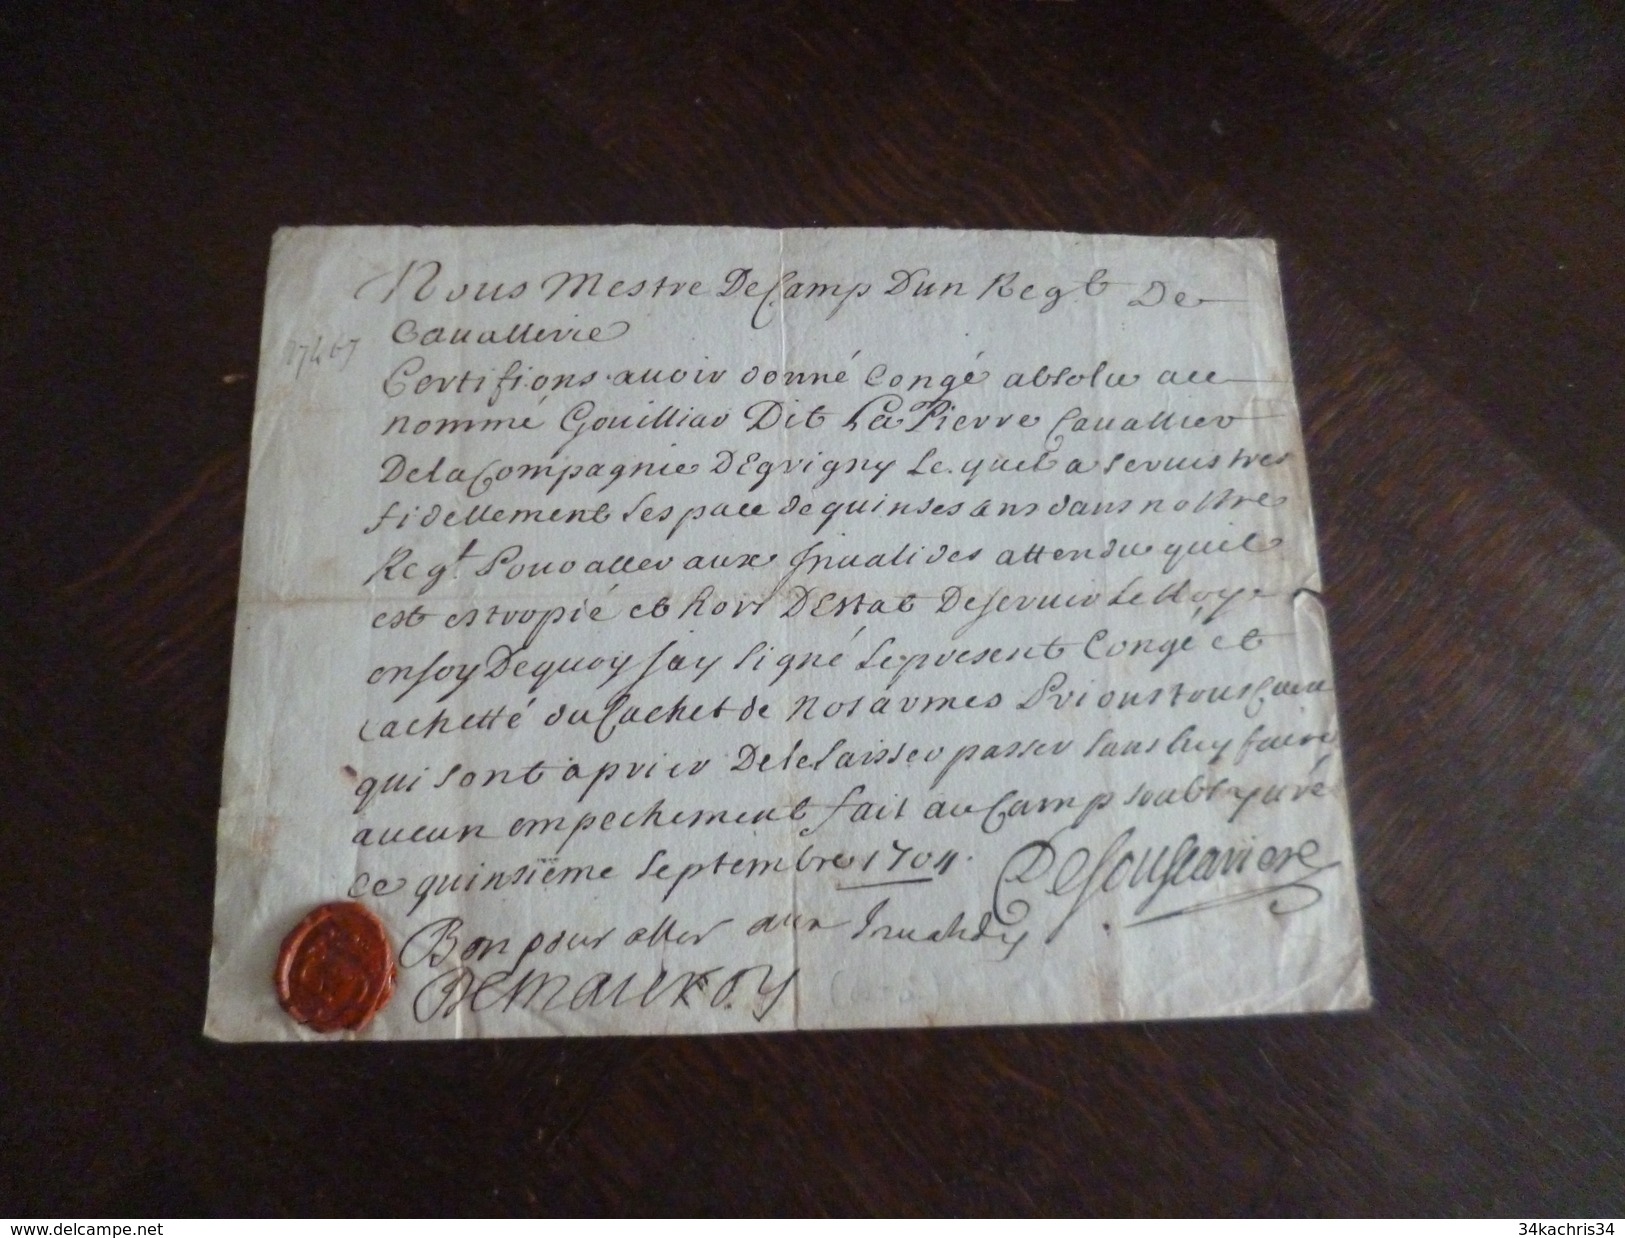 Nous Mestre De Camp Dun Regt De
Cauallerie
Certifions auoir donné Congé absolu au
nommé Gouilliar Dit La Pierre Cauallier
De la Compagnie DEgrigny Le quel a seruis tres
fidellement Lespace de quinses ans dans nostre
Regt. Pour aller aux Inualides attendu quil
est estropié et hors DEstat De seruir Le Roy
en foy De quoy Jay signé Le present Congé et
cachetté du Cachet de Nos armes Prions tous Ceux
qui sont a prier De le laisser passer sans luy faire
aucun empechement fait au Camp soubt
ce quinsiême Septembre 1704.
Bon pour aller aux Inualides
www.delcampe.net
34kachris34